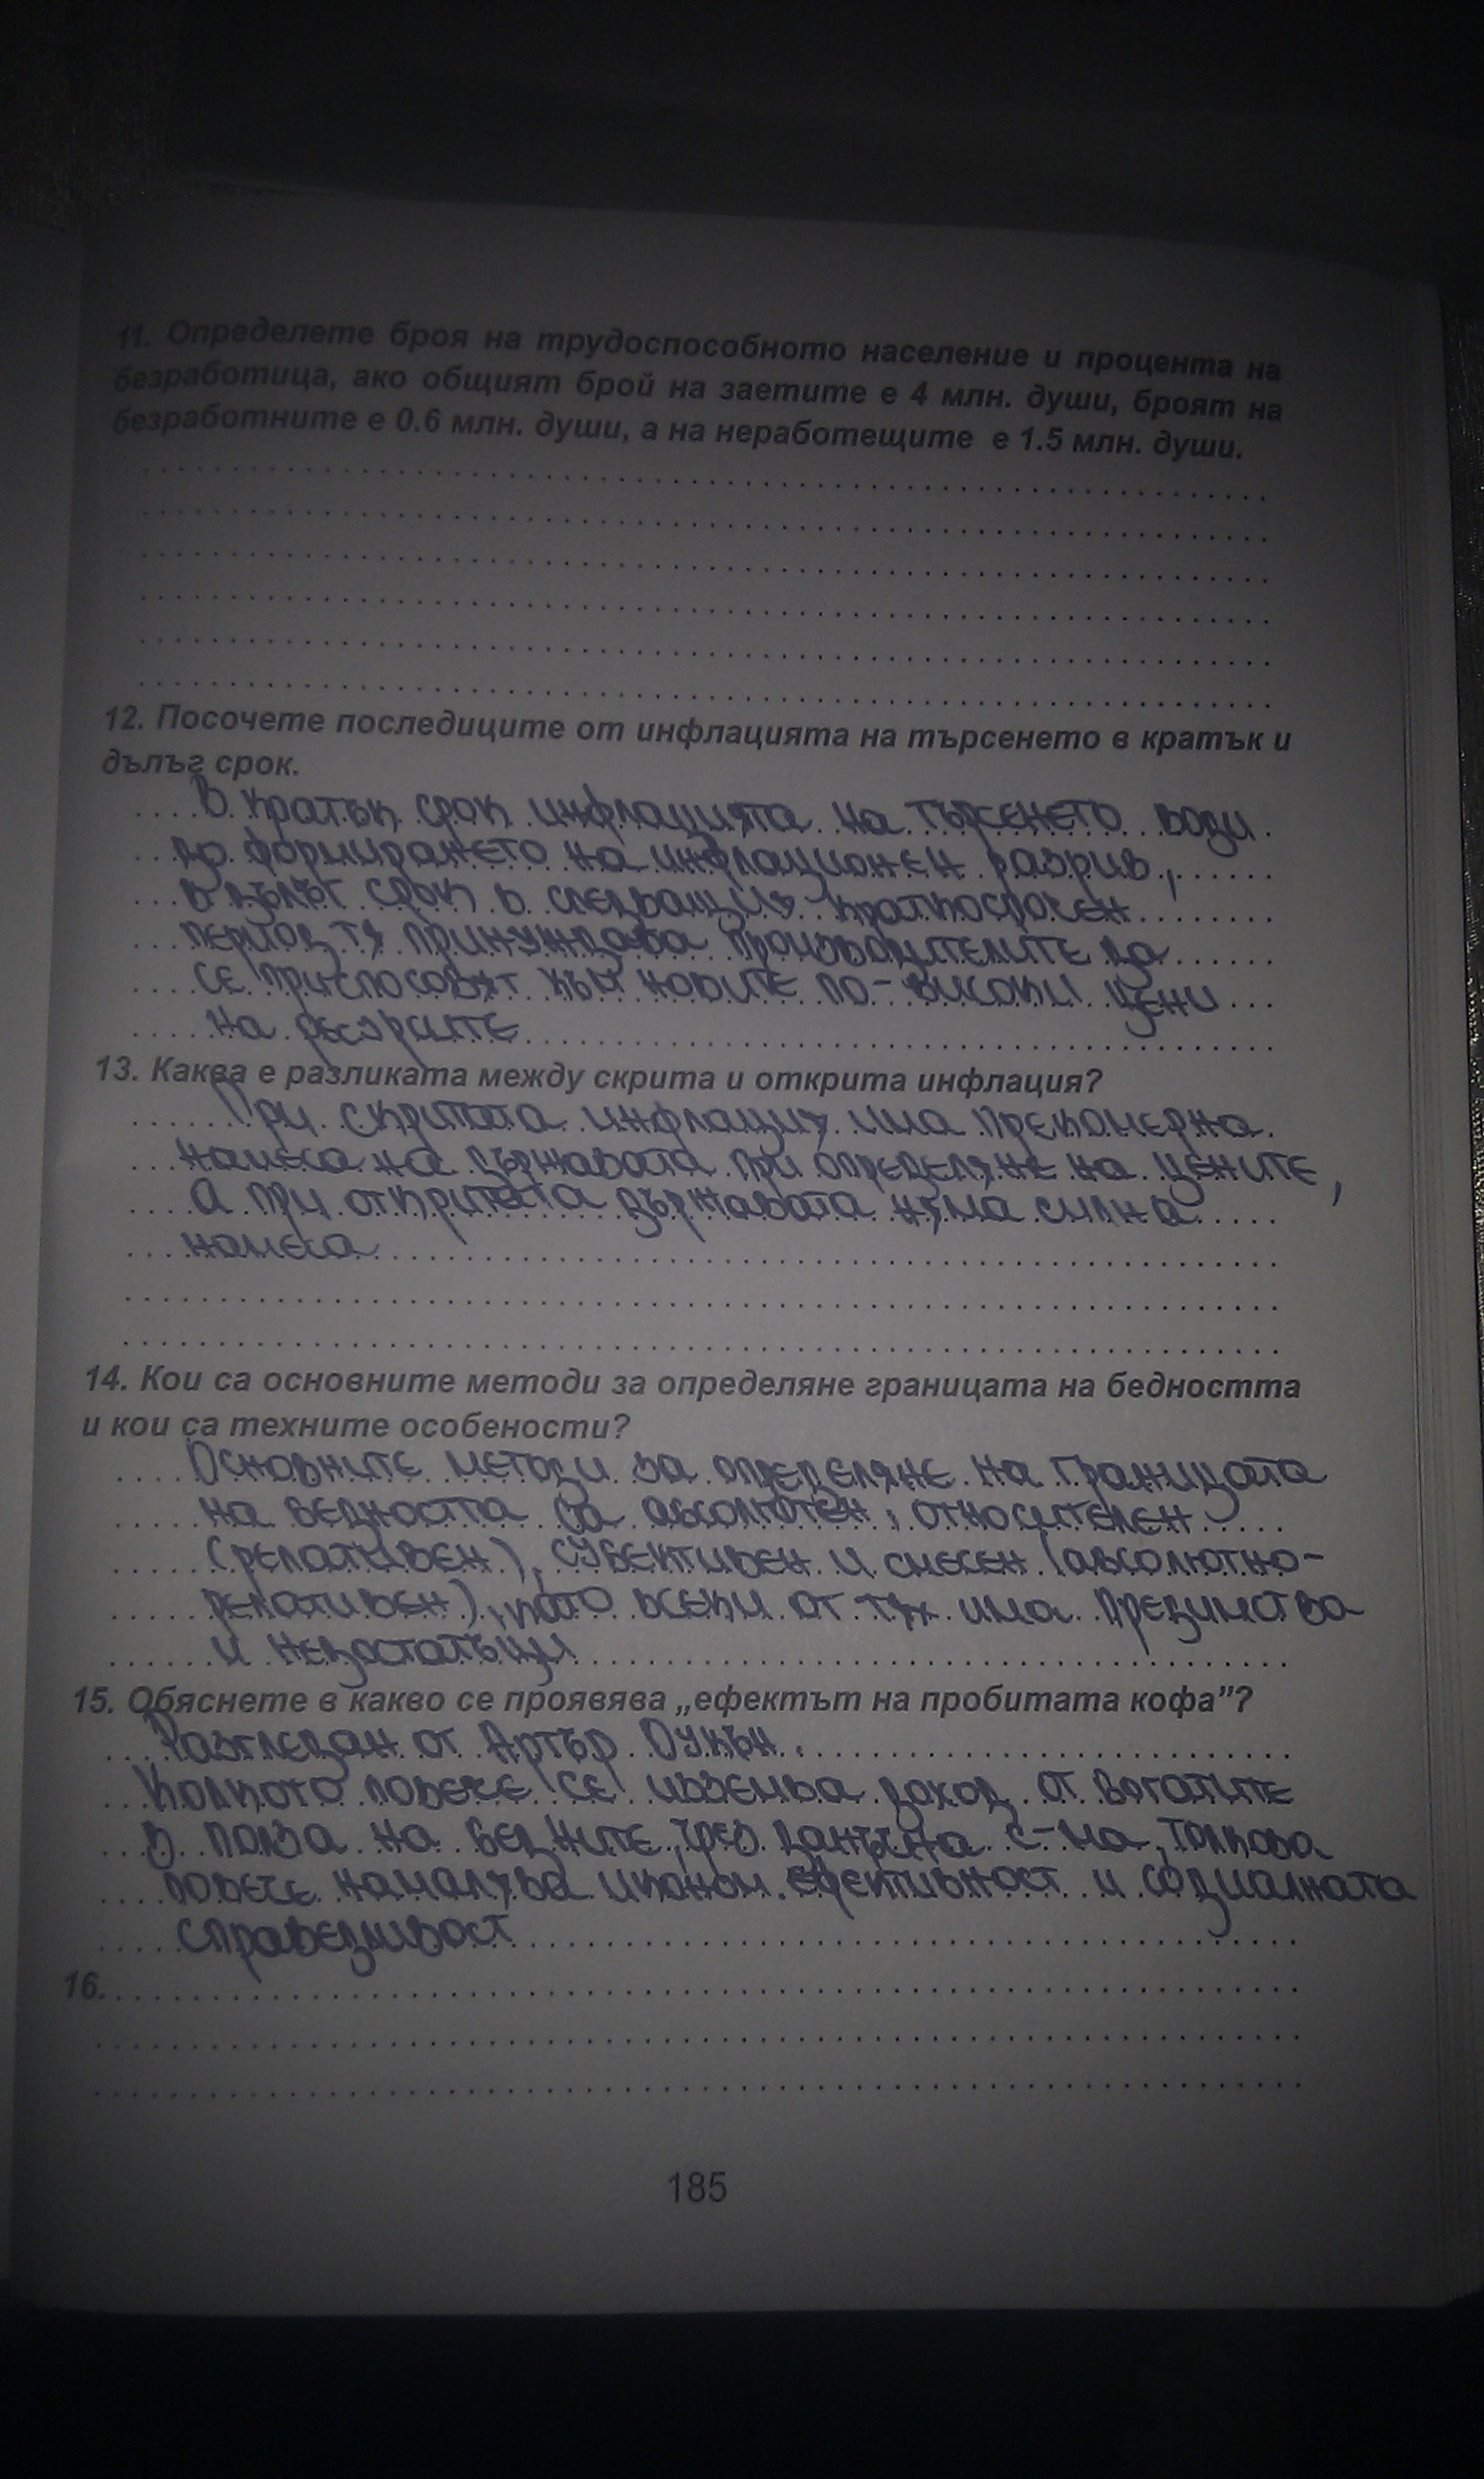 11. Определете броя на трудоспособното население и процента на
безработица, ако общият брой на заетите е 4 млн. души, броят на
безработните е 0.6 млн. души, а на неработещите е 1.5 млн. души.
12. Посочете последиците от инфлацията на търсенето в кратък и
дълъг срок.
В кратък срок инфлацията на търсенето води
до формирането на инфлационен разрив,
в дълъг срок в следващия краткосрочен
период тя принуждава производителите да
се приспособят към новите по-високи цени
на ресурсите
13. Каква е разликата между скрита и открита инфлация?
При скритата инфлация има прекомерна
намеса на държавата при определяне на цените,
а при откритата държавата няма силна
намеса
14. Кои са основните методи за определяне границата на бедността
и кои са техните особености?
Основните методи за определяне на границата
на бедността са абсолютен, относителен
(релативен), субективен и смесен (абсолютно-
релативен), като всеки от тях има предимства
и недостатъци
15. Обяснете в какво се проявява „ефектът на пробитата кофа”?
Разгледан от Артър Оукън.
Колкото повече се изземва доход от богатите
в полза на бедните, чрез данъчна с-ма, толкова
повече намалява иконом. ефективност и социалната
справедливост
16.
185